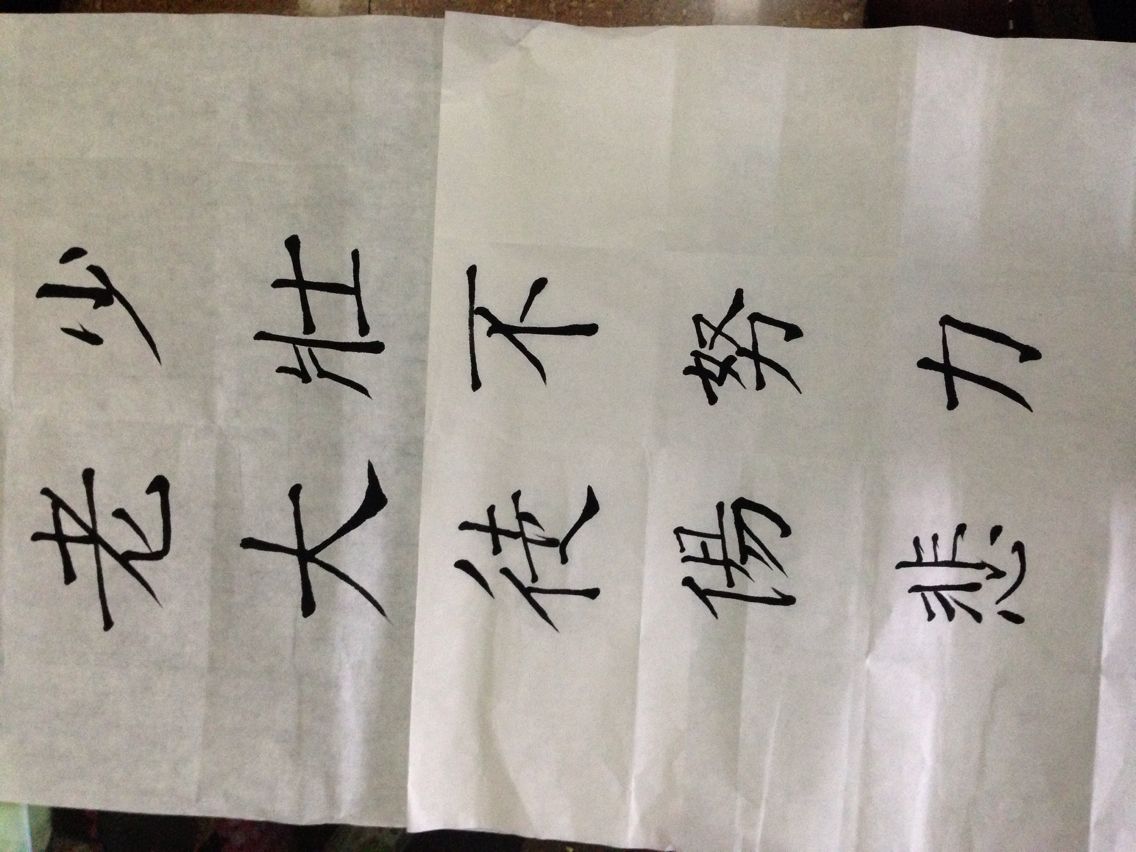 少壯不努力
老大徒傷悲